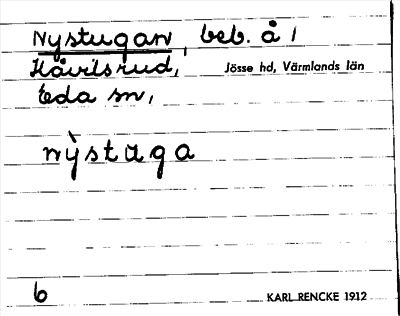 Nystugan, beb. å 1
Håvilsrud, Jösse hd, Värmlands län
Eda sn,
nỳstuga
6 KARL RENCKE 1912